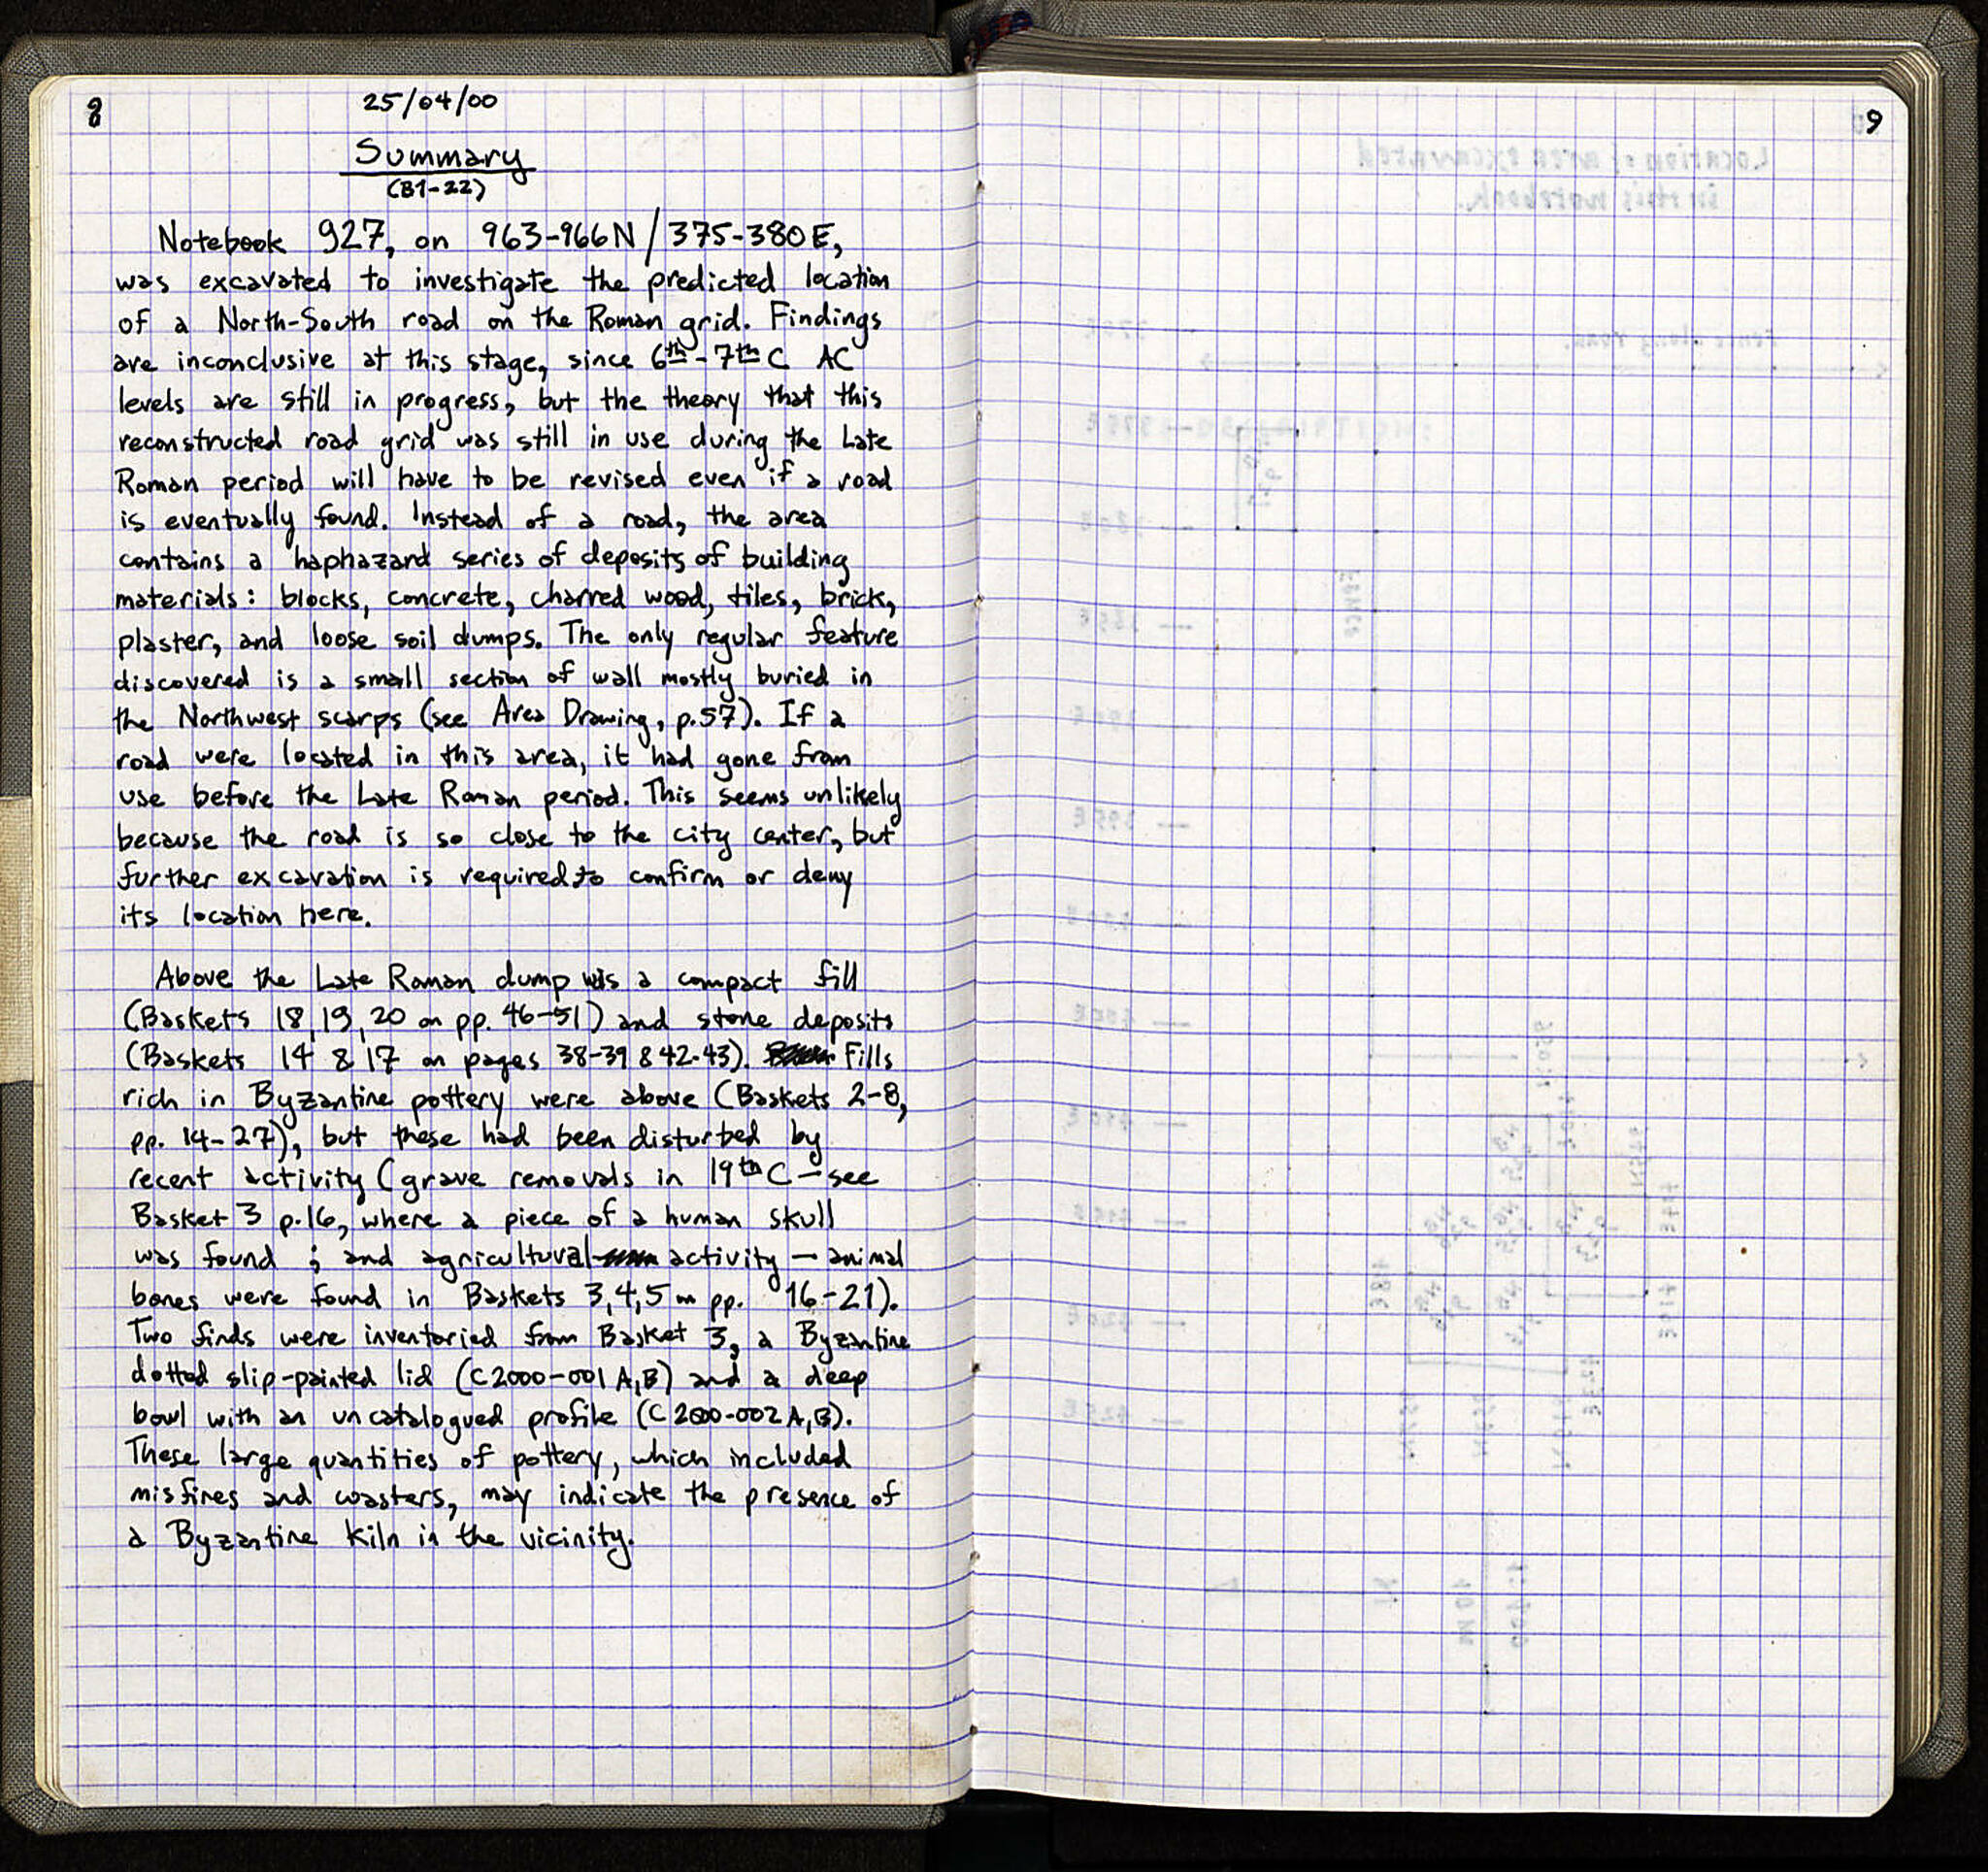 8
25/04/00
Summary
(B1-22)
Notebook 927, on 963-966N / 375-380E,
was excavated to investigate the predicted location
of a North-South road on the Roman grid. Findings
are inconclusive at this stage, since 6th - 7th C AC
levels are still in progress, but the theory that this
reconstructed road grid was still in use during the Late
Roman period will have to be revised even if a road
is eventually found. Instead of a road, the area
contains a haphazard series of deposits of building
materials: blocks, concrete, charred wood, tiles, brick,
plaster, and loose soil dumps. The only regular feature
discovered is a small section of wall mostly buried in
the Northwest scarps (see Area Drawing, p.57). If a
road were located in this area, it had gone from
use before the Late Roman period. This seems unlikely
because the road is so close to the city center, but
further excavation is required to confirm or deny
its location here.
Above the Late Roman dump was a compact fill
(Baskets 18, 19, 20 on pp. 46-51) and stone deposits
(Baskets 14 & 17 on pages 38-39 & 42-43). Fills
rich in Byzantine pottery were above (Baskets 2-8,
pp. 14-27), but these had been disturbed by
recent activity (grave removals in 19th C - see
Basket 3 p.16, where a piece of a human skull
was found ; and agricultural activity - animal
bones were found in Baskets 3,4,5 on pp. 16-21).
Two finds were inventoried from Basket 3, a Byzantine
dotted slip-painted lid (C2000-001 A,B) and a deep
bowl with an uncatalogued profile (C2000-002 A,B).
These large quantities of pottery, which included
misfires and wasters, may indicate the presence of
a Byzantine kiln in the vicinity.
9